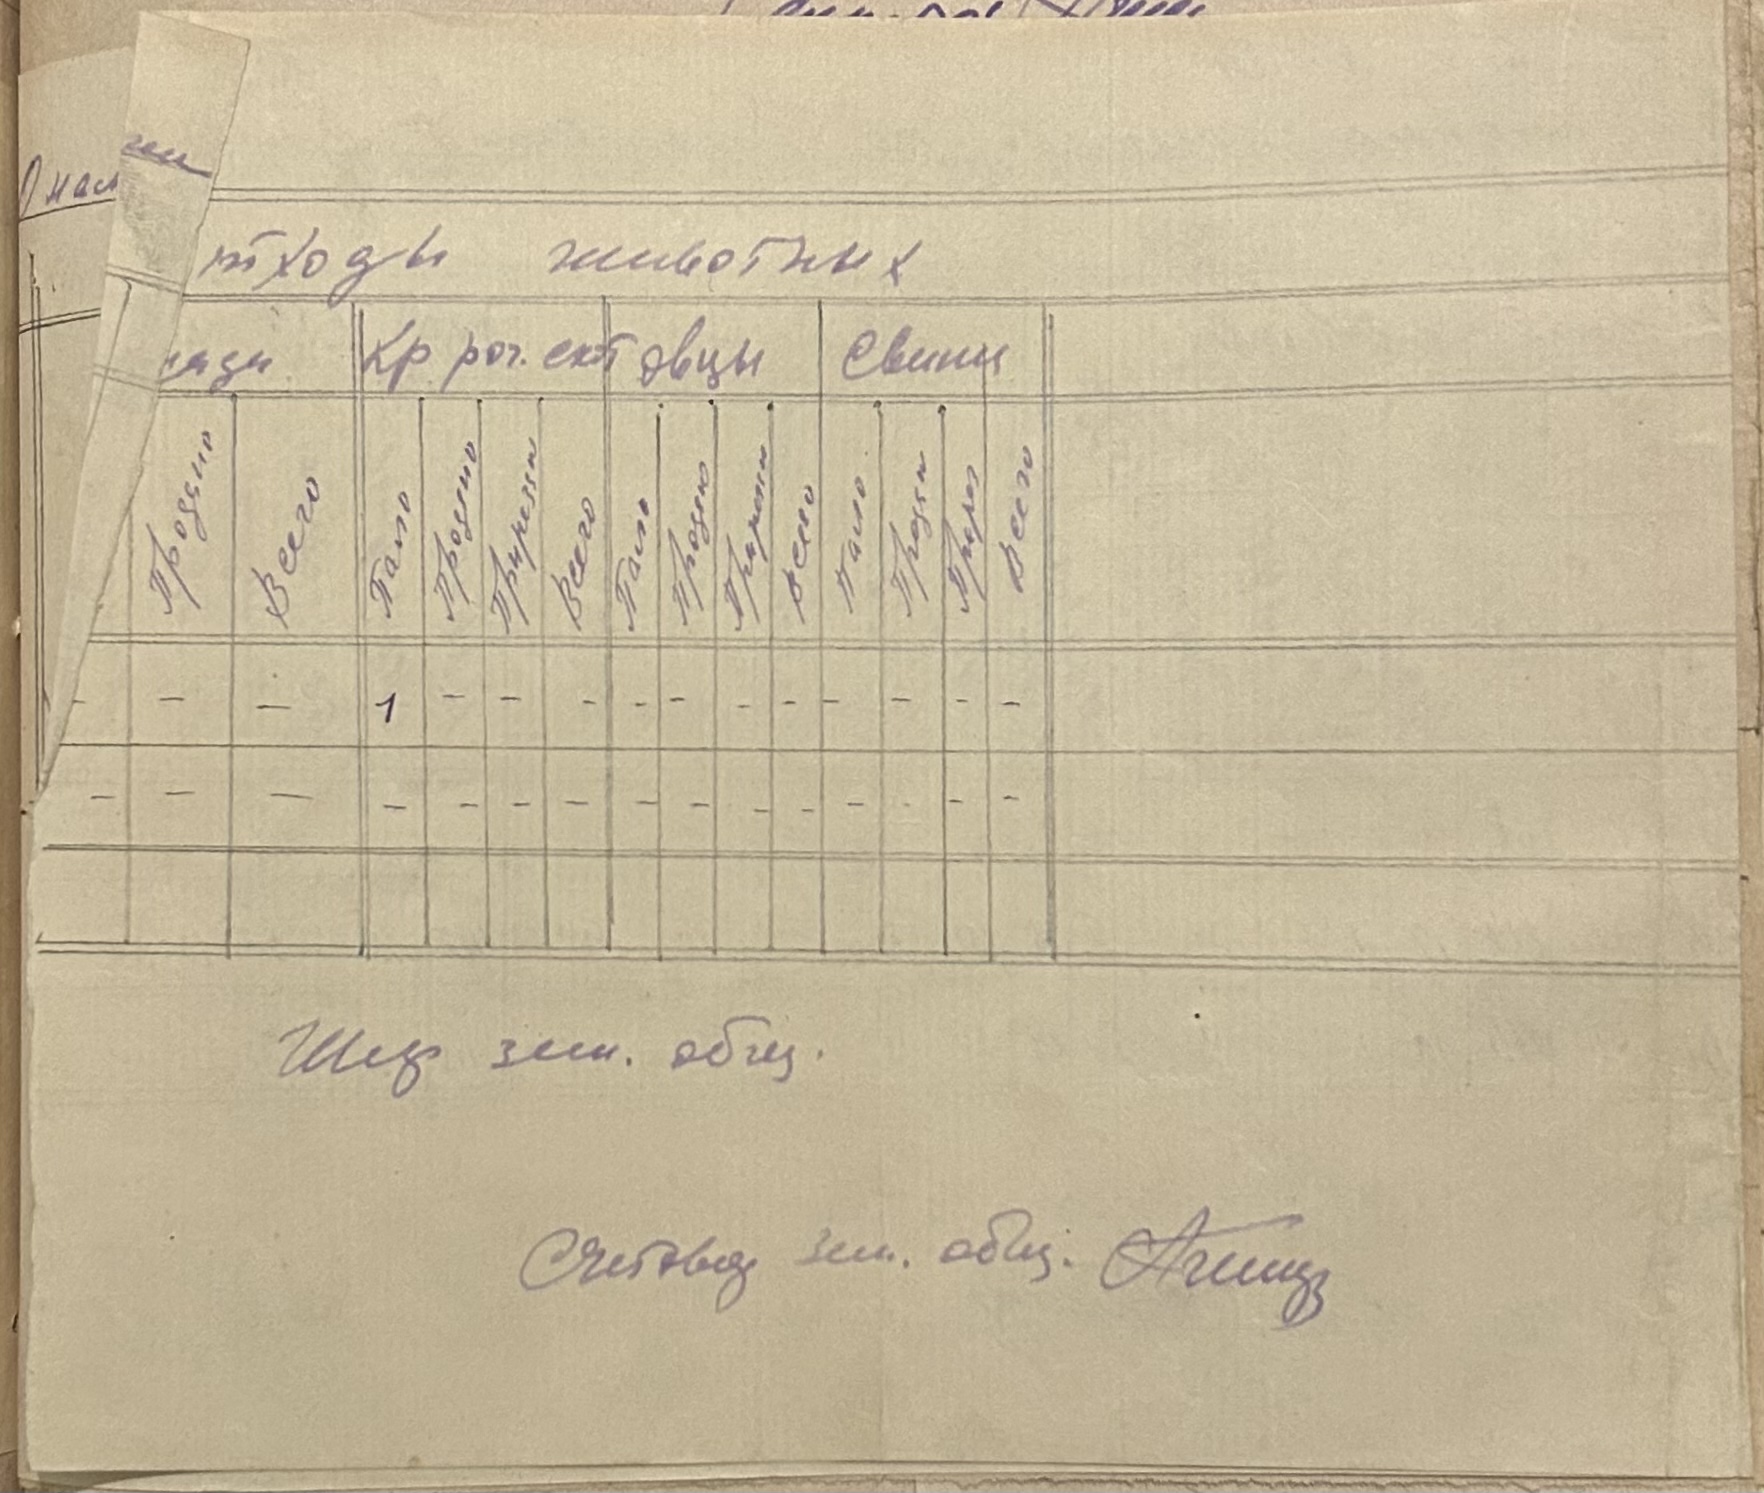 тходы животных
шади Кр рог. скот овцы Свиньи
Продано Всего Пало Продано Прирезан Всего Пало Продано Прирезан Всего Пало Продан Прирез Всего
- - - 1 - - - - - - - - - - -
- - - - - - - - - - - - - - -
зем. общ.
Счетовод зем. общ.